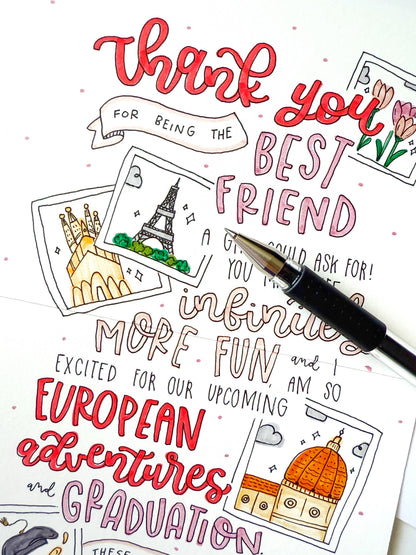 Thank you
FOR BEING THE
BEST
FRIEND
A GI ULD ASK FOR!
YOU
infinitely
MORE FUN and I
AM SO
EXCITED FOR OUR UPCOMING
EUROPEAN
adventures
and GRADUATION
THESE